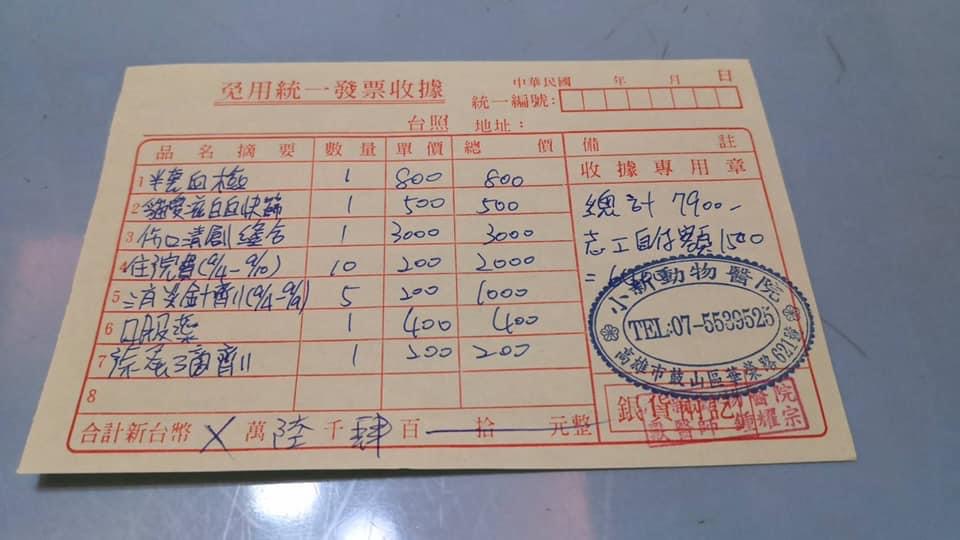 免用統一發票收據
中華民國 年 月 日
統一編號:
台照 地址:
品名摘要 數量 單價 總價 備註
1 半套血檢 1 800 800
2 貓愛滋白血快篩 1 500 500
3 傷口清創縫合 1 3000 3000
4 住院費(9/4-9/10) 10 200 2000
5 消炎針劑(9/4-9/9) 5 200 1000
6 口服藥 1 400 400
7 除蚤滴劑 1 200 200
8
合計新台幣 X 萬 陸 千 肆 百 — 拾 元整
收據專用章
總計 7900-
志工自付額 1500
=
小新動物醫院
TEL:07-5539525
高雄市鼓山區華榮路621號
銀貨兩訖
醫院
獸醫師 鍾耀宗